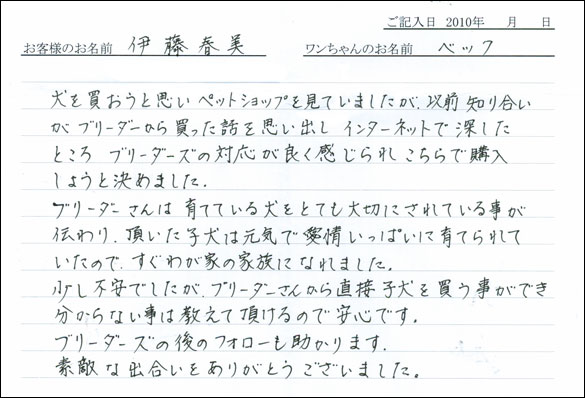 ご記入日 2010年 月 日
お客様のお名前 伊藤春美 ワンちゃんのお名前 ベック
犬を買おうと思い ペットショップを見ていましたが、以前 知り合い
が ブリーダーから買った話を思い出し インターネットで深した
ところ ブリーダーズの対応が良く感じられ こちらで購入
しようと決めました。
ブリーダーさんは 育てている犬をとても大切にされている事が
伝わり、頂いた子犬は元気で愛情いっぱいに育てられて
いたので、すぐわが家の家族になれました。
少し不安でしたが、ブリーダーさんから直接 子犬を買う事ができ
分からない事は教えて頂けるので安心です。
ブリーダーズの後のフォローも助かります。
素敵な出合いをありがとうございました。